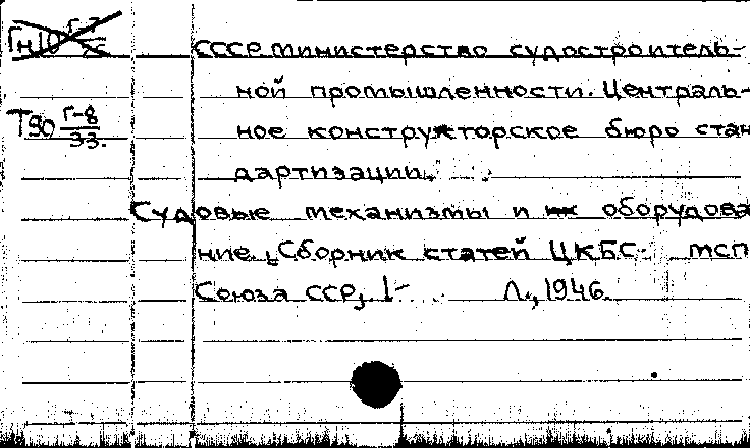 СССР. Министерство судостроитель-
ной промышленности. Централь-
Т90 Г-8/33. ное конструкторское бюро стан
дартизации.
Судовые механизмы и их оборудова
ние. Сборник статей ЦКБС. МСП
Союза ССР, 1- Л., 1946.